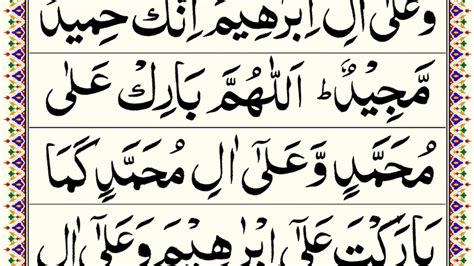 وَعَلٰٓى اٰلِ اِبْرٰهِيْمَ اِنَّكَ حَمِيْدٌ
مَّجِيْدٌ ؕ اَللّٰهُمَّ بَارِكْ عَلٰى
مُحَمَّدٍ وَّعَلٰٓى اٰلِ مُحَمَّدٍ كَمَا
بَارَكْتَ عَلٰٓى اِبْرٰهِيْمَ وَعَلٰٓى اٰلِ